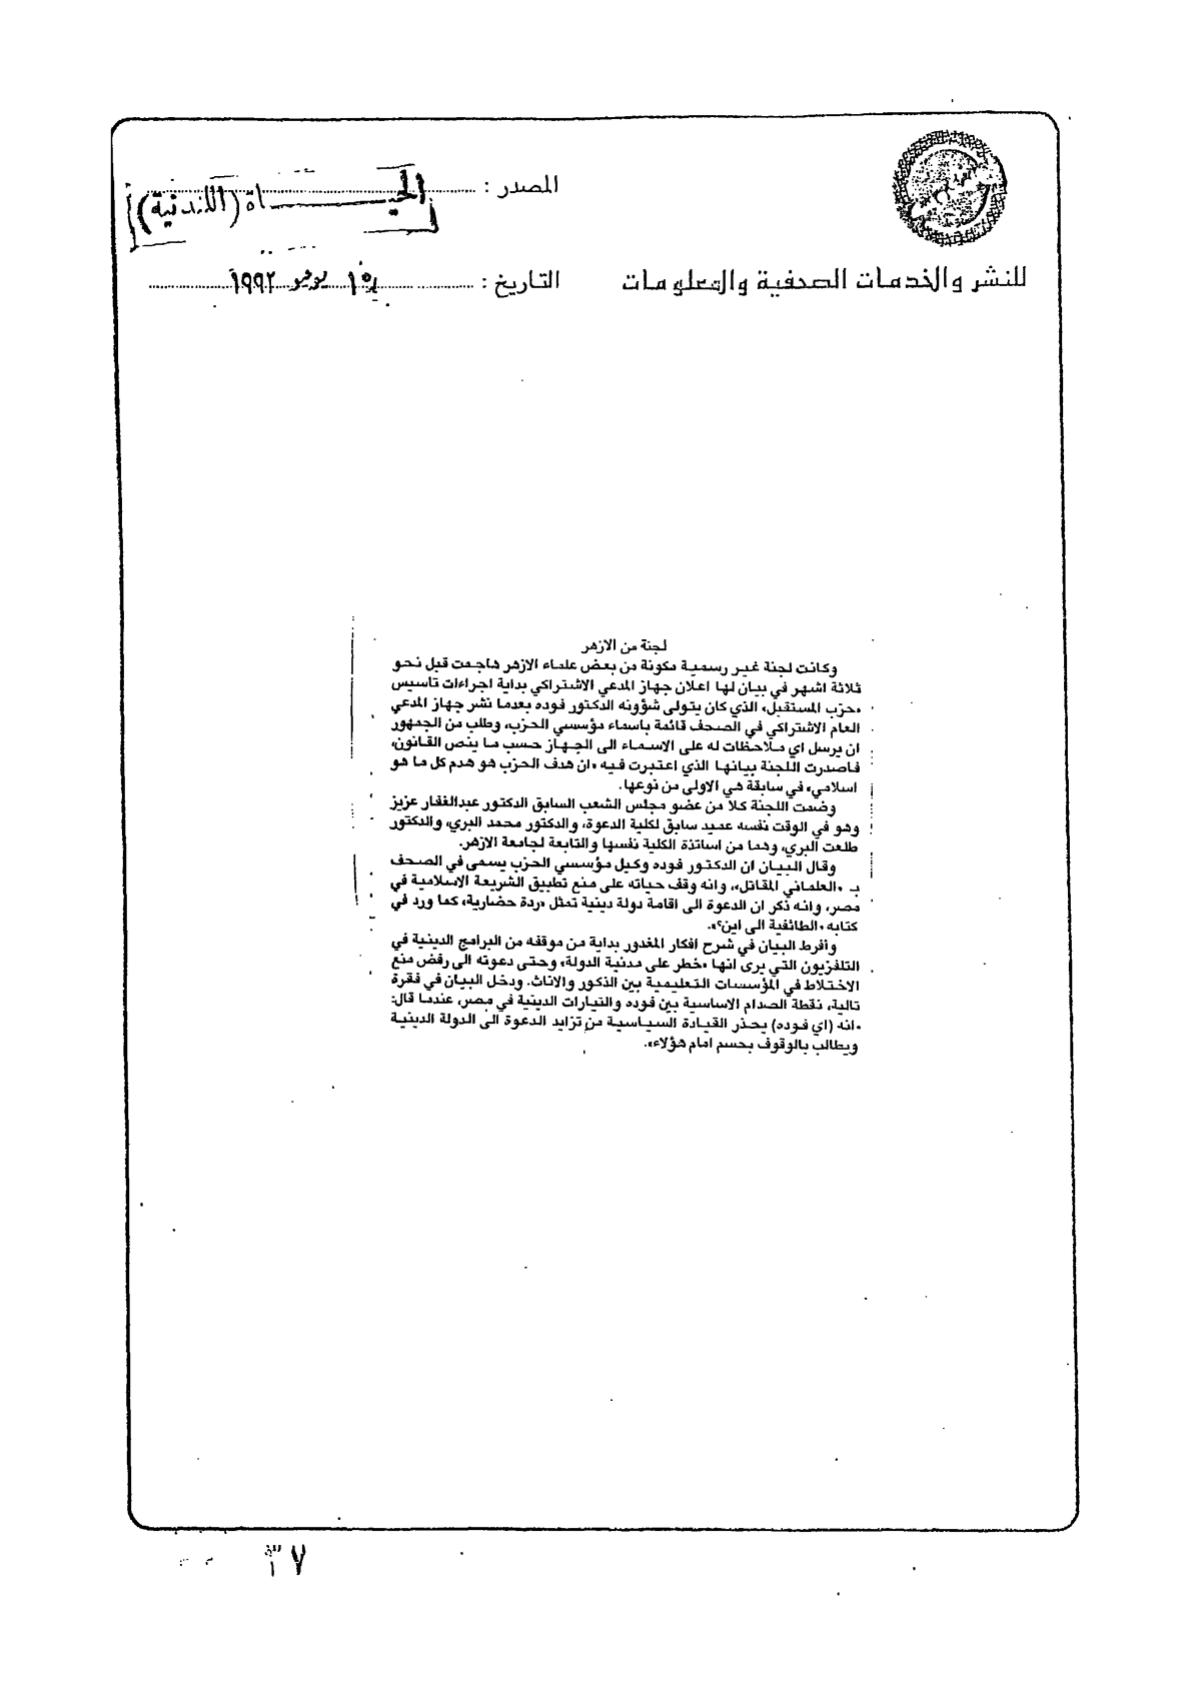 المصدر : الحياة (اللندنية)
للنشر والخدمات الصحفية والمعلومات
التاريخ : ١٥ يونيو ١٩٩٢
لجنة من الازهر
وكانت لجنة غير رسمية مكونة من بعض علماء الازهر هاجمت قبل نحو
ثلاثة اشهر في بيان لها اعلان جهاز المدعي الاشتراكي بداية اجراءات تاسيس
«حزب المستقبل» الذي كان يتولى شؤونه الدكتور فوده بعدما نشر جهاز المدعي
العام الاشتراكي في الصحف قائمة باسماء مؤسسي الحزب، وطلب من الجمهور
ان يرسل اي ملاحظات له على الاسماء الى الجهاز حسب ما ينص القانون،
فاصدرت اللجنة بيانها الذي اعتبرت فيه «ان هدف الحزب هو هدم كل ما هو
اسلامي» في سابقة هي الاولى من نوعها.
وضمت اللجنة كلا من عضو مجلس الشعب السابق الدكتور عبدالغفار عزيز
وهو في الوقت نفسه عميد سابق لكلية الدعوة، والدكتور محمد البري، والدكتور
طلعت البري، وهما من اساتذة الكلية نفسها والتابعة لجامعة الازهر.
وقال البيان ان الدكتور فوده وكيل مؤسسي الحزب يسمى في الصحف
بـ «العلماني المقاتل»، وانه وقف حياته على منع تطبيق الشريعة الاسلامية في
مصر، وانه ذكر ان الدعوة الى اقامة دولة دينية تمثل «ردة حضارية» كما ورد في
كتابه «الطائفية الى اين؟».
وأفرط البيان في شرح افكار المغدور بداية من موقفه من البرامج الدينية في
التلفزيون التي يرى انها «خطر على مدنية الدولة» وحتى دعوته الى رفض منع
الاختلاط في المؤسسات التعليمية بين الذكور والاناث. ودخل البيان في فقرة
تالية، نقطة الصدام الاساسية بين فوده والتيارات الدينية في مصر، عندما قال:
«انه (اي فوده) يحذر القيادة السياسية من تزايد الدعوة الى الدولة الدينية
ويطالب بالوقوف بحسم امام هؤلاء».